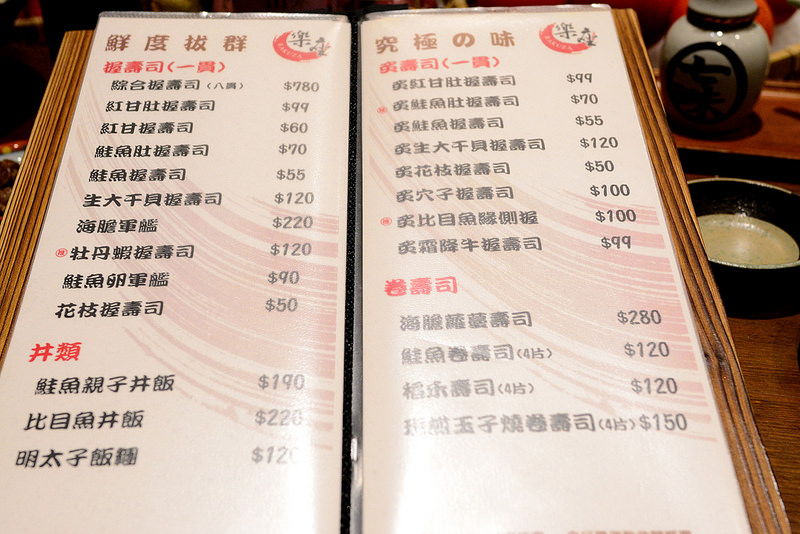 鮮度拔群
樂座
握壽司(一貫)
綜合握壽司(八貫) $780
紅甘肚握壽司 $99
紅甘握壽司 $60
鮭魚肚握壽司 $70
鮭魚握壽司 $55
生大干貝握壽司 $120
海膽軍艦 $220
牡丹蝦握壽司 $120
鮭魚卵軍艦 $90
花枝握壽司 $50
丼類
鮭魚親子丼飯 $190
比目魚丼飯 $220
明太子飯糰
究極の味
炙壽司(一貫)
炙紅甘肚握壽司 $99
炙鮭魚肚握壽司 $70
炙鮭魚握壽司 $55
炙生大干貝握壽司 $120
炙花枝握壽司 $50
炙穴子握壽司 $100
炙比目魚緣側握 $100
炙霜降牛握壽司 $99
卷壽司
海膽蘿蔓壽司 $280
鮭魚卷壽司(4片) $120
稻禾壽司(4片) $120
玉子燒卷壽司(4片) $150